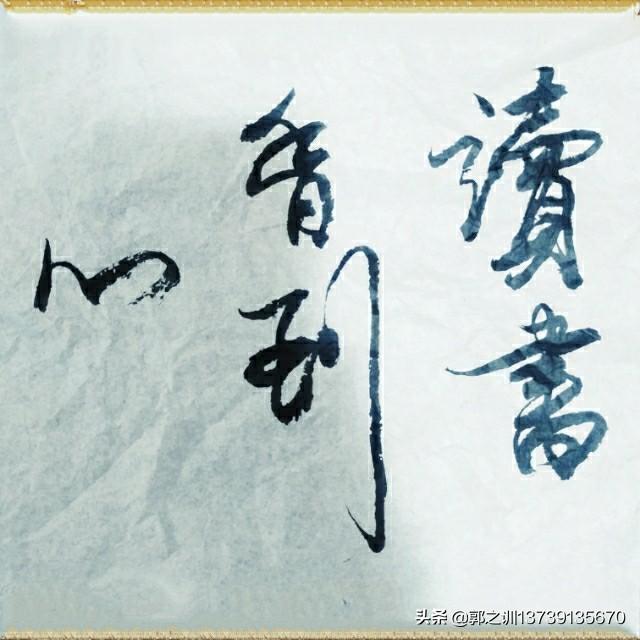 讀書
香到
心
头条 @郭之训13739135670